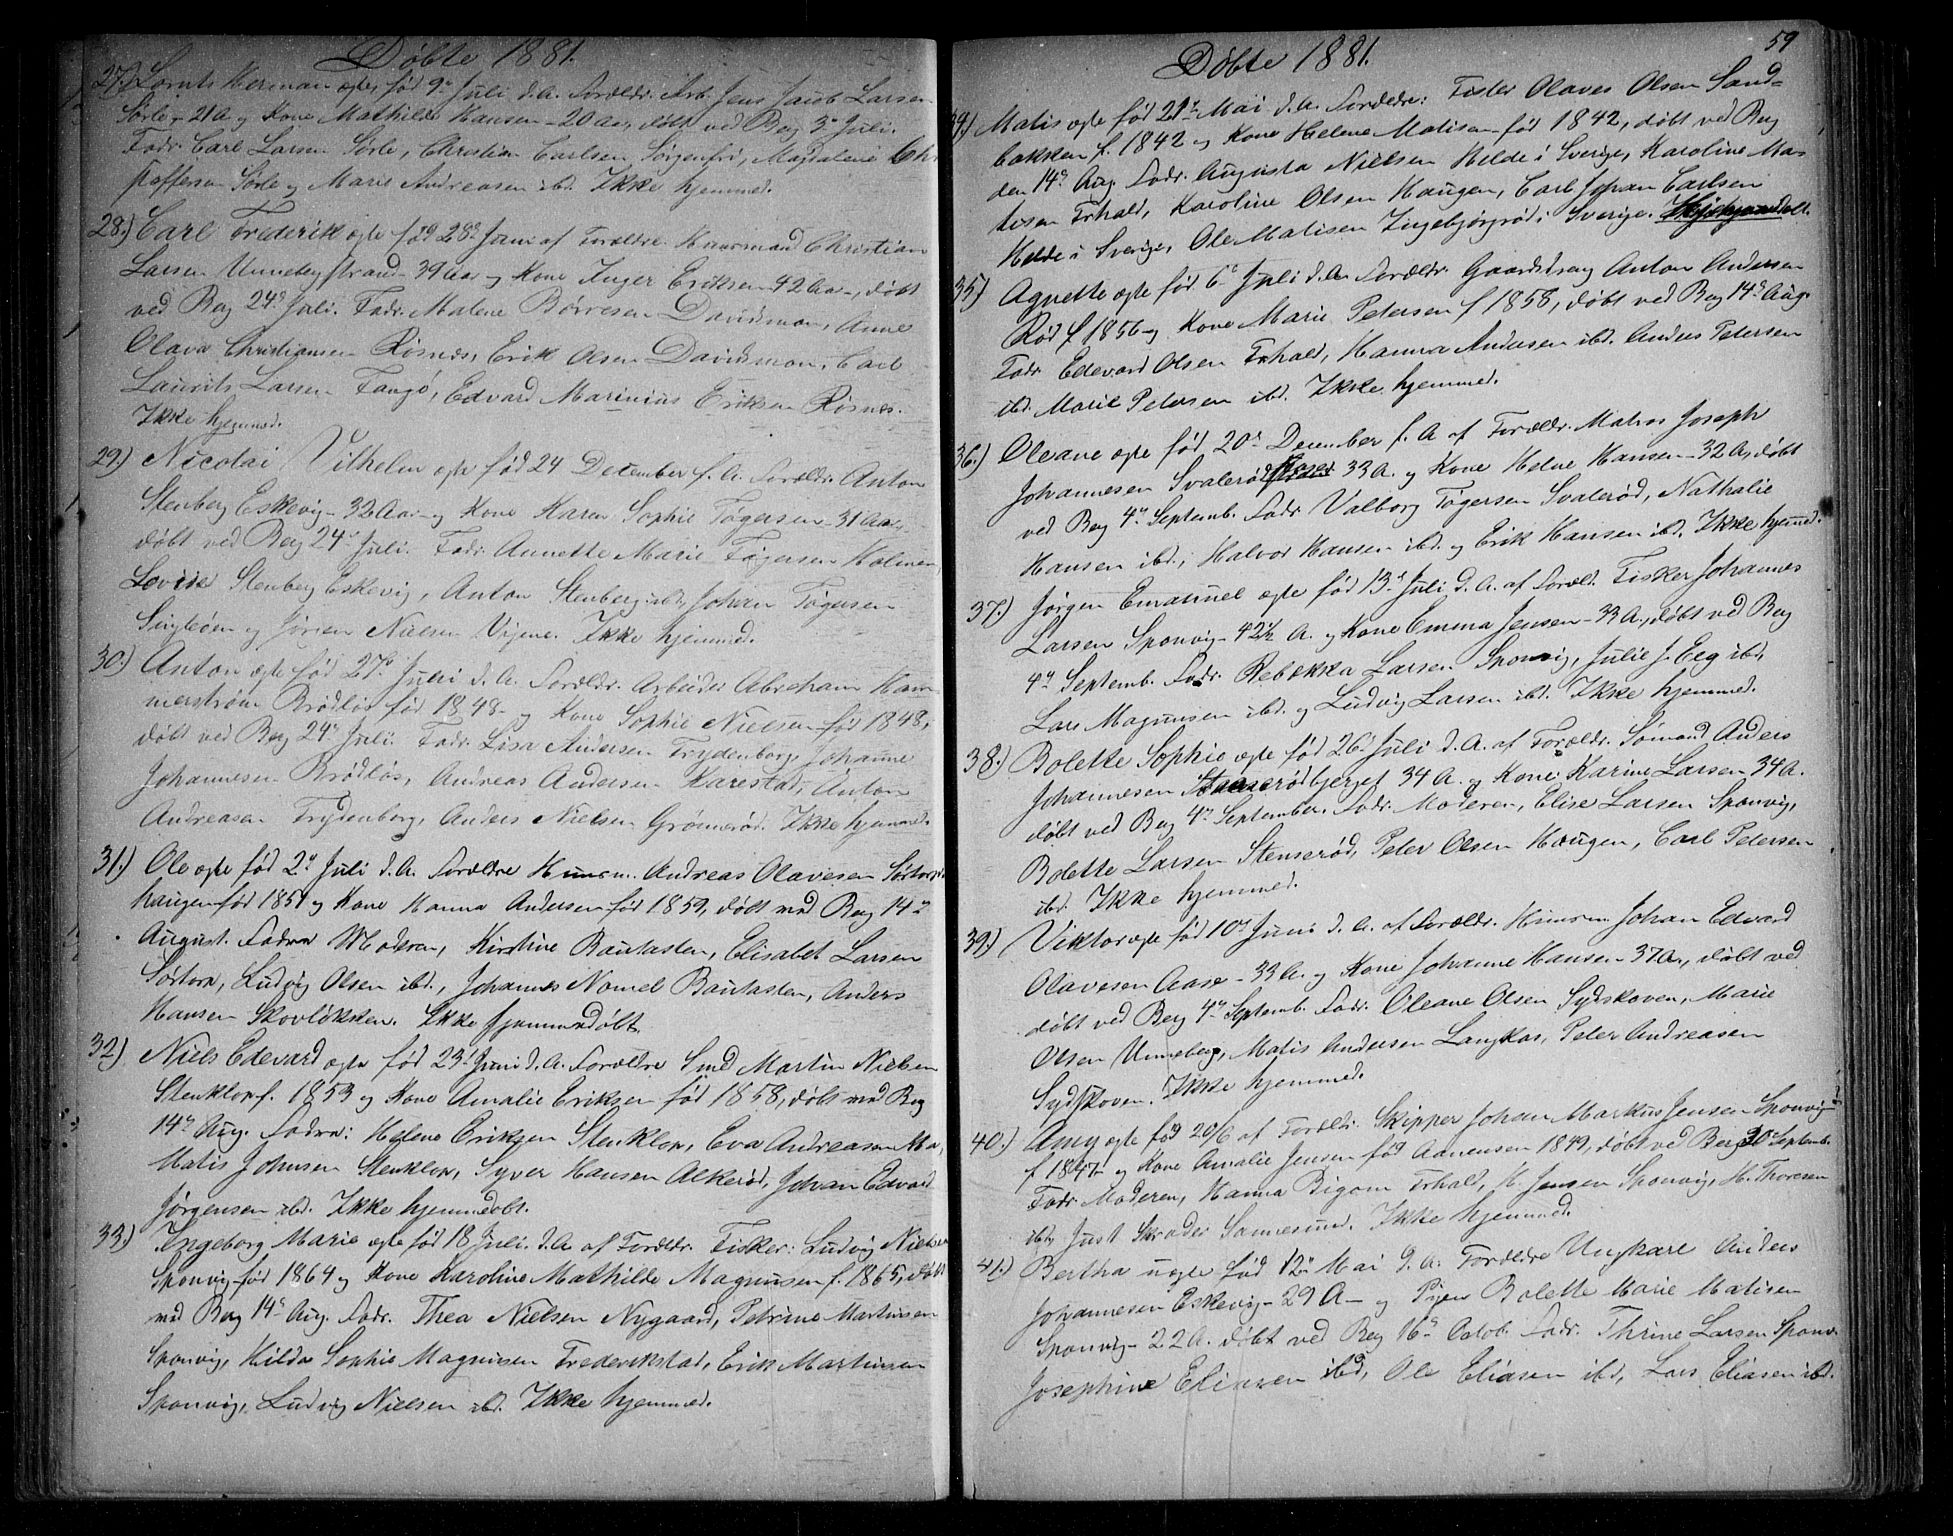 Døbte 1881.
27.) Lornts Herman ægte, født 9de Juli d.A. Forældr. Arb. Jens Jacob Larsen
Sørle - 21 A og Kone Mathilde Hansen - 20 Aar, døbt ved Berg 3die Juli.
Fadr. Carl Larsen Sørle, Christian Carlsen Sørgenfri, Magdalene Chr
stoffersen Sørle og Marie Andreasen ibd. Ikke hjemmed.
28.) Carl Frederik ægte født 28de Juni af Forældre Huusmand Christian
Larsen Unnebergstrand - 39 Aar og Kone Inger Eriksen - 42 Aar -, døbt
ved Berg 24de Juli. Fadr. Malene Børresen Davidsmon, Anne
Olava Christiansen Røsnes, Erik Olsen Davidsmon, Carl
Laurits Larsen Tangø, Edvard Marinius Eriksen Røsnes.
Ikke hjemmed.
29.) Nicolai Vilhelm ægte født 24 December f.A. Forældr. Anton
Stenberg Eskevig - 32 Aar - og Kone Karen Sophie Tøgersen - 31 Aar,
døbt ved Berg 24de Juli. Fadr. Annette Marie Tøgersen Holmen,
Lovise Stenberg Eskevig, Anton Stenberg ibd, Johan Tøgersen
Singløen og Jørgen Nielsen Vigene. Ikke hjemmed.
30.) Anton ægte født 27de Juli d.A. Forældr. Arbeider Abraham Ham-
merstrøm Brødløs født 1848 - og Kone Sophie Nielsen født 1848,
døbt ved Berg 24de Juli. Fadr. Lisa Andersen Frydenborg, Johanne
Johannesen Brødløs, Andreas Andersen Karestad, Anton
Andreasen Frydenberg, Anders Nielsen Grønnerød. Ikke hjemmed.
31.) Ole ægte født 2den Juli d.A. Forældre Huusm. Andreas Olavesen Sørtorp
haugen født 1851 og Kone Hanna Andersen født 1859, døbt ved Berg 14de
August. Fadre Moderen, Kirstine Bautasten, Elisabet Larsen
Sørtorp, Ludvig Olsen ibd., Johannes Nomel Bautasten, Anders
Hansen Skovløkken. Ikke hjemmedøbt.
32.) Niels Edevard ægte født 23de Juni d.A. Forældre Smed Martin Nielsen
Stenklop f. 1853 og Kone Amalie Eriksen født 1858, døbt ved Berg
14de Aug. Fadre: Helene Eriksen Stenklop, Eva Andreasen
Matis Johnsen Stenklop, Syver Hansen Alkerød, Johan Edvard
Jørgensen ibd. Ikke hjemmedøbt.
33.) Ingeborg Marie ægte født 18 Juli. d.A. af Forældr. Fisker: Ludvig Nielsen
Sponvig født 1864 og Kone Karoline Mathilde Magnusen f. 1865, døbt
ved Berg 14de Aug. Fadr. Thea Nielsen Nygaard, Petrine Martinsen
Sponvig, Hilda Sophie Magnusen Frederikstad, Erik Martinsen
Sponvig, Ludvig Nielsen ibd. Ikke hjemmed.
Døbte 1881.
59
34.) Matis ægte født 21de Mai d.A. Forældre: Fisker Olaves Olsen Sand-
bakken f. 1842 og Kone Helene Matisen født 1842, døbt ved Berg
den 14de Aug. Fadr. Augusta Nielsen Helde i Sverige, Karoline Ma-
tisen Frhald, Karoline Olsen Haugen, Carl Johan Carlsen
Helde i Sverige, Ole Matisen Ingebjørgrød i Sverige.
35.) Agnette ægte født 6te Juli d.A. Forældr. Gaardsdreng Anton Andersen
Rød f. 1856 og Kone Marie Petersen f 1858, døbt ved Berg 14de Aug.
Fadr. Edevard Olsen Frhald, Hanna Andersen ibd. Anders Petersen
ibd. Marie Petersen ibd. Ikke hjemmed.
36.) Oleane ægte født 20de December f.A. af Forældr. Matros Joseph
Johannesen Svalerød 33 A. og Kone Helene Hansen - 32 A, døbt
ved Berg 4de Septemb. Fadr. Valborg Tøgersen Svalerød, Nathalie
Hansen ibd., Halvor Hansen ibd. og Erik Hansen ibd. Ikke hjemmed.
37.) Jørgen Emanuel ægte født 13de Juli d.A. af Foræld. Fisker Johannes
Larsen Sponvig - 42½ A. og Kone Emma Jensen - 33 A., døbt ved Berg
4de Septemb. Fadr. Rebekka Larsen Sponvig, Julie J. Eeg ibd,
Lars Magnusen ibd. og Ludvig Larsen ibd. Ikke hjemmed.
38.) Bolette Sophie ægte født 26de Juli d.A. af Forældr. Sømand Anders
Johannesen Stenserødbjerget 34 A. og Kone Karine Larsen - 34 A.
døbt ved Berg 4de September. Fadr. Moderen, Elise Larsen Sponvig,
Bolette Larsen Stenserød, Peter Olsen Haugen, Carl Petersen
ibd. Ikke hjemmed.
39.) Viktor ægte født 10de Juni d.A. af Forældr. Huusm Johan Edvard
Olavesen Aase - 33 A. og Kone Johanne Hansen - 37 A., døbt ved
døbt ved Berg 4de Septemb. Fadr. Oleane Olsen Sydskoven, Marie
Olsen Unneberg, Matis Andersen Langkas, Peter Andreasen
Sydskoven. Ikke hjemmed.
40.) Amy ægte født 20/6 af Forældr. Skipper Johan Markus Jensen Sponvig
f 1847 - og Kone Amalie Jensen født Aanensen 1849, døbt ved Berg Septemb.
Fadr. Moderen, Hanna Bigom Frhald, H. Jensen Sponvig, H. Thoresen
ibd, Just Skrøder Sannesund. Ikke hjemmed.
41.) Bertha uægte født 12te Mai d.A. Forældre Ungkarl Anders
Johannesen Eskevig - 29 A - og Pigen Bolette Marie Matisen
Sponvig - 22 A. døbt ved Berg 16de Octob. Fadr. Thrine Larsen Sponv.
Josephine Eliasen ibd, Ole Eliasen ibd, Lars Eliasen ibd.